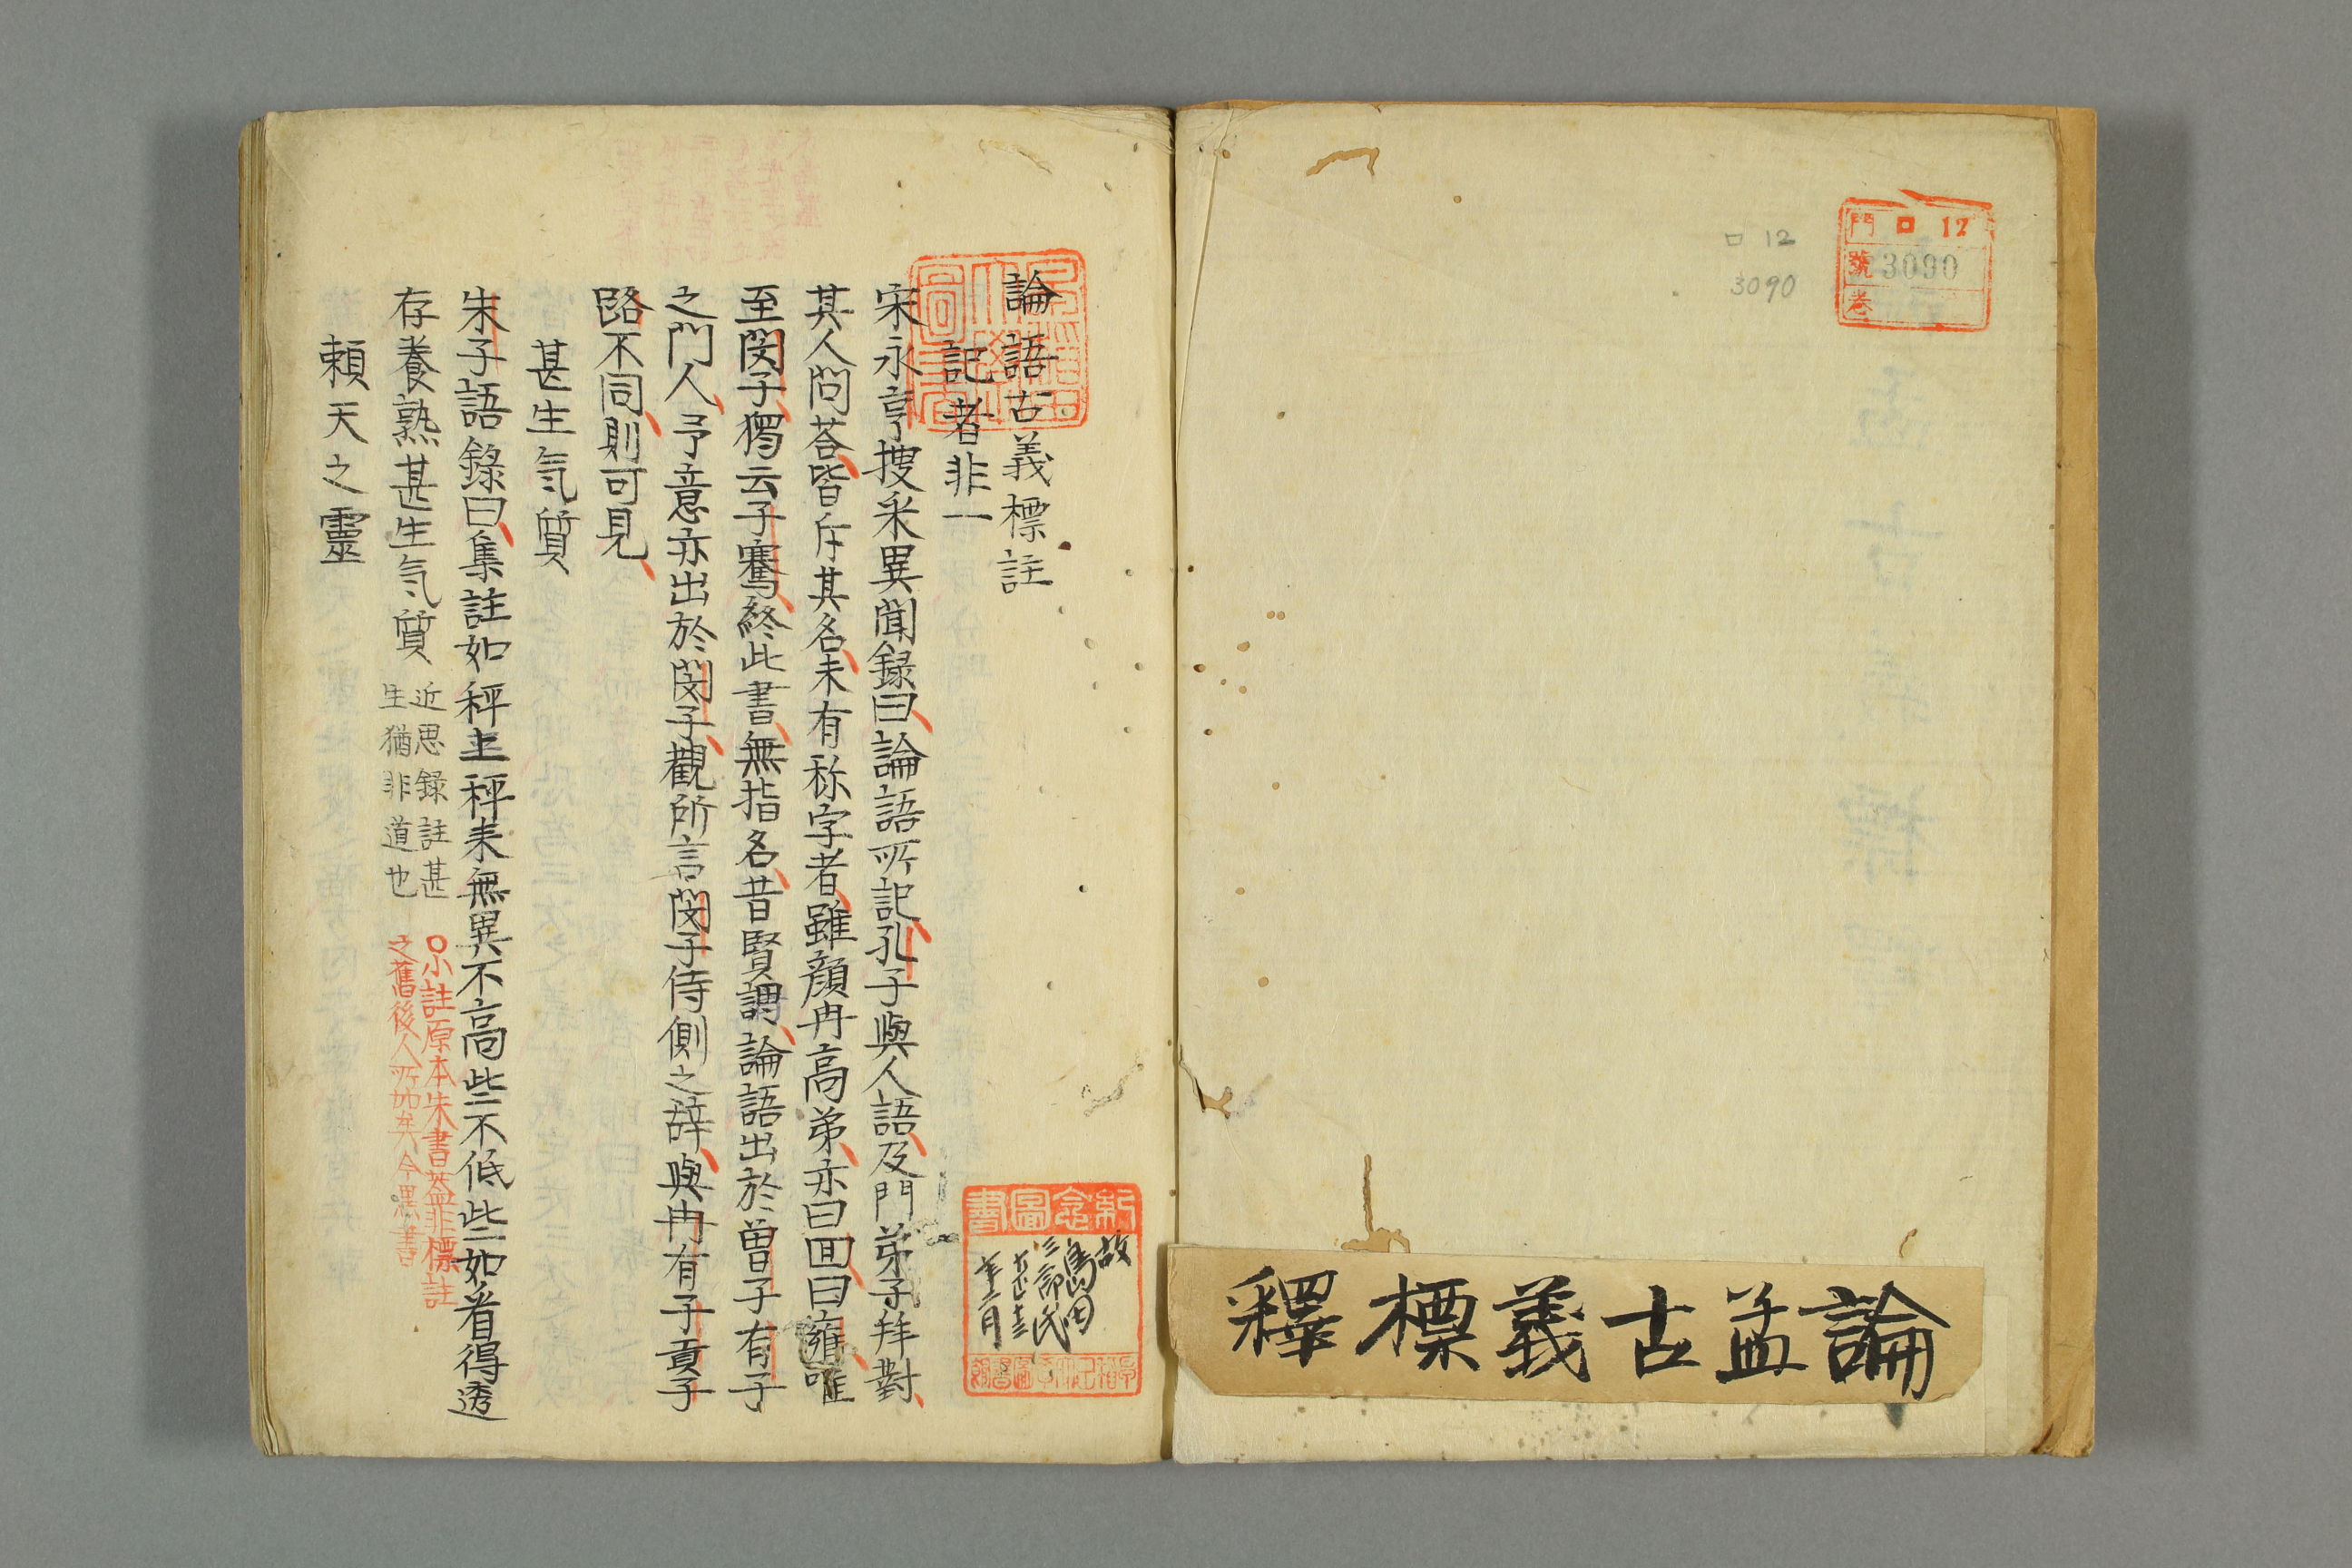 門 ロ 12
號 3090
卷
ロ 12
3090
論孟古義標釋
論語古義標註
記者非一
宋永亨搜采異聞録曰論語所記孔子與人語及門弟子拜對
其人問荅皆斥其名未有称字者雖顔冉高弟亦曰囬曰雍唯
至閔子獨云子騫終此書無指名昔賢謂論語出於曽子有子
之門人予意亦出於閔子觀所言閔子侍側之辞與冉有子貢子
路不同則可見
甚生氣質
朱子語錄曰集註如秤上秤来無異不高些不低些如看得透
存養熟甚生氣質
近思録註甚
生猶非道也
〇小註原本朱書蓋非標註
之舊後人所加矣今黒書
頼天之靈
紀念圖書
故
島田
三郎氏
大正十三
年十二月
早稲田大學圖書館